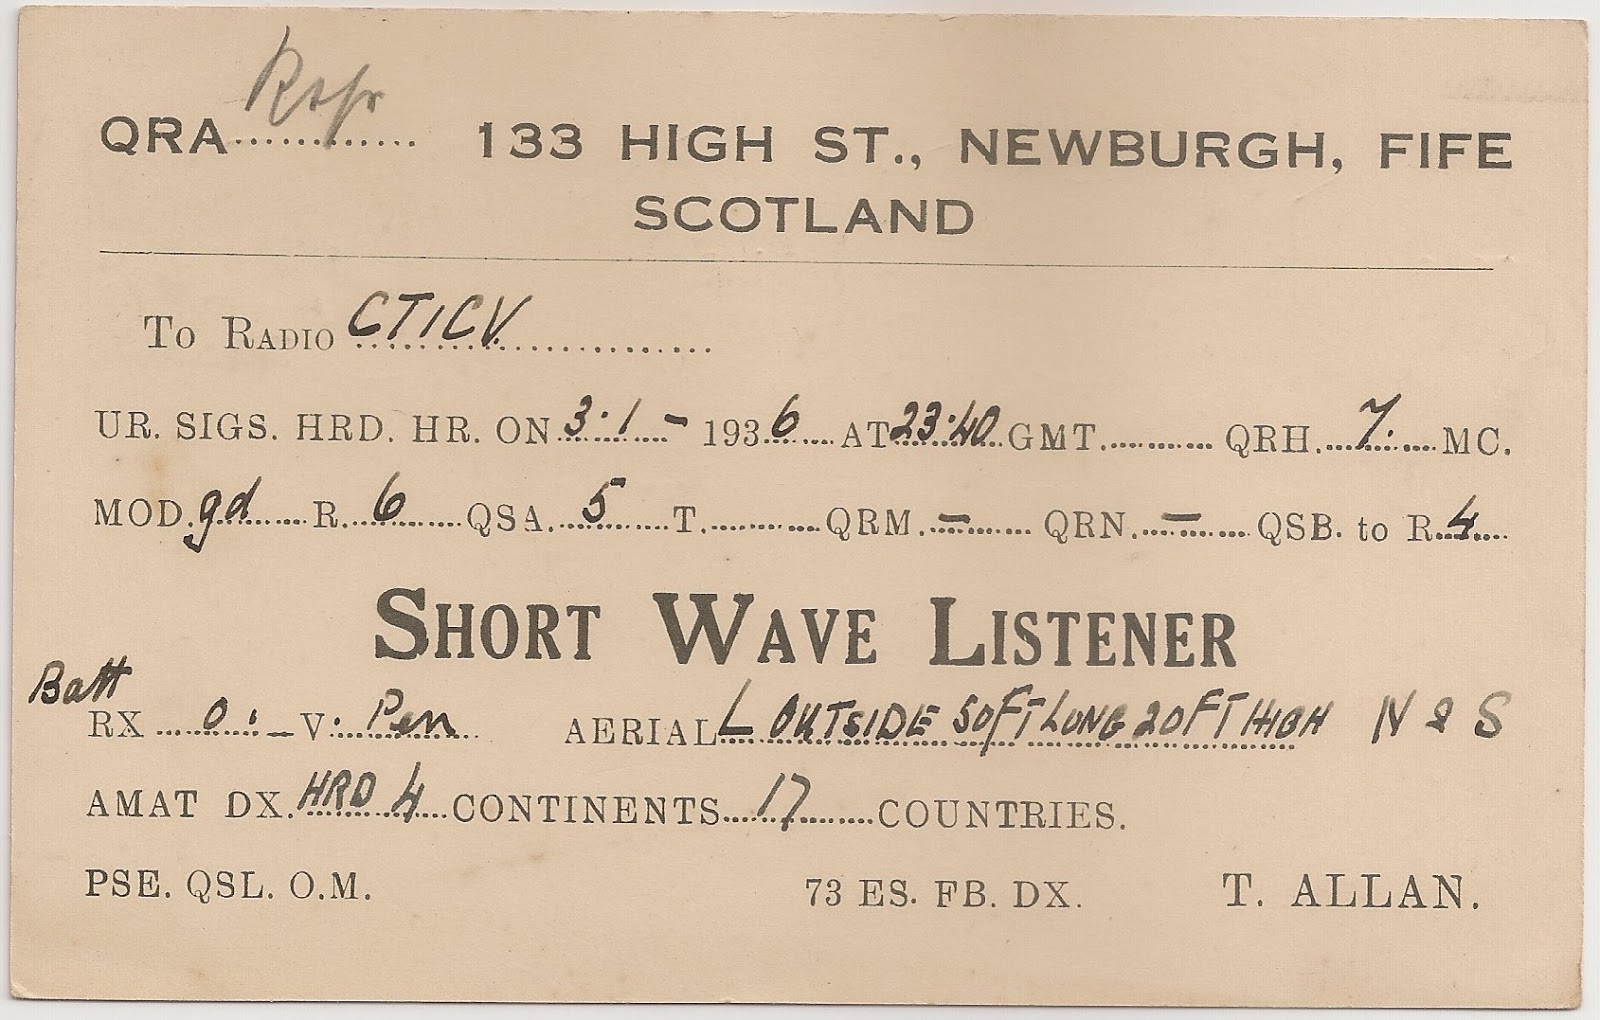 QRA............ 133 HIGH ST., NEWBURGH, FIFE
SCOTLAND
To Radio CT1CV
UR. SIGS. HRD. HR. ON 3.1.- 1936 AT 23.40 GMT. QRH. 7. MC.
MOD. gd R. 6 QSA. 5 T. QRM. - QRN. - QSB. to R. 4
Short Wave Listener
Batt
RX 0.-V. Pen AERIAL L OUTSIDE 50FT LONG 20FT HIGH N & S
AMAT DX. HRD 4 CONTINENTS 17 COUNTRIES.
PSE. QSL. O.M. 73 ES. FB. DX. T. ALLAN.